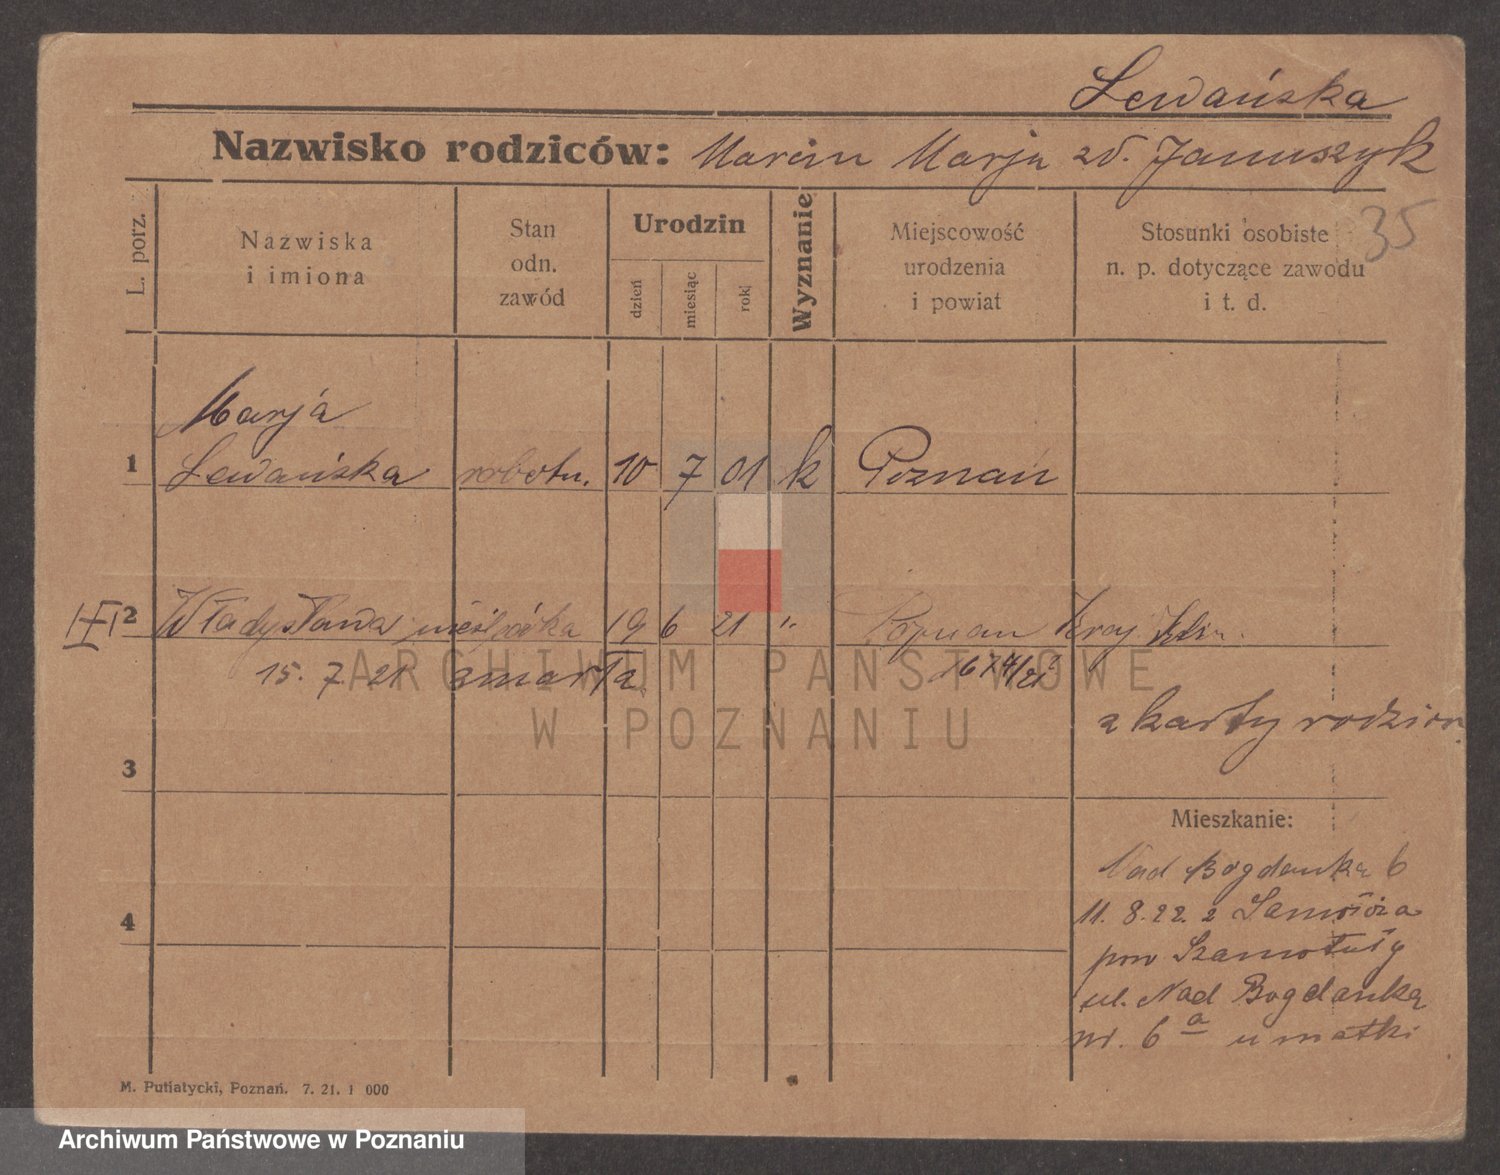 Lewańska
Nazwisko rodziców: Marcin Marja zd. Januszyk
35
L. porz.
Nazwiska
i imiona
Stan
odn.
zawód
Urodzin
dzień
miesiąc
rok
Wyznanie
Miejscowość
urodzenia
i powiat
Stosunki osobiste
n. p. dotyczące zawodu
i t. d.
Marja
1 Lewańska robotn. 10 7 01 k Poznań
III 2 Władysława nieślubka 19 6 21 " Poznań
15. 7. 21 zmarła 1674/21
z karty rodzicn.
3
Mieszkanie:
Nad Bogdanką 6
4
11. 8. 22. z
pow Szamotuły
ul. Nad Bogdanką
nr. 6a u matki
M. Putiatycki, Poznań. 7. 21. 1 000
ARCHIWUM PAŃSTWOWE
W POZNANIU
Archiwum Państwowe w Poznaniu